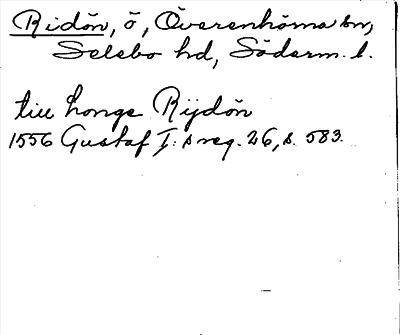 Ridön, ö, Överenhörna sn,
Selebo hd, Söderm. l.
till honge Rijdön
1556 Gustaf I:s reg. 26, s. 583.